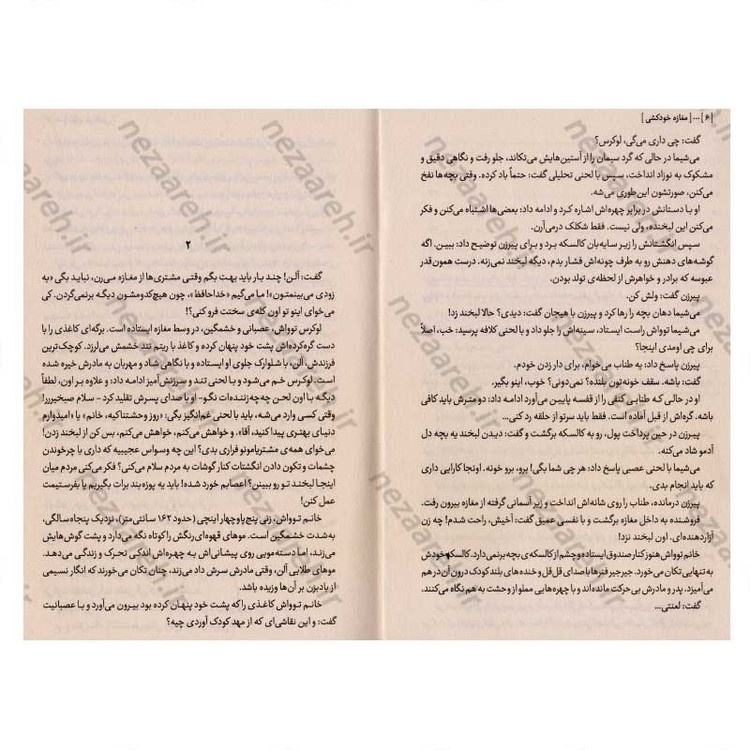 [ ۶ ] ... [ مغازه خودکشی ]
گفت: چی داری می‌گی، لوکرس؟
می‌شیما در حالی که گرد سیمان را از آستین‌هایش می‌تکاند، جلو رفت و نگاهی دقیق و
مشکوک به نوزاد انداخت، سپس با لحنی تحلیلی گفت: حتماً باد کرده. وقتی بچه‌ها نفخ
می‌کنن، صورتشون این‌طوری می‌شه.
او با دستانش در برابر چهره‌اش اشاره کرد و ادامه داد: بعضی‌ها اشتباه می‌کنن و فکر
می‌کنن این لبخنده، ولی نیست. فقط شکلک درمی‌آرن.
سپس انگشتانش را زیر سایه‌بان کالسکه برد و برای پیرزن توضیح داد: ببین. اگه
گوشه‌های دهنش رو به طرف چونه‌اش فشار بدم، دیگه لبخند نمی‌زنه. درست همون‌قدر
عبوسه که برادر و خواهرش از لحظه‌ی تولد بودن.
پیرزن گفت: ولش کن.
می‌شیما دهان بچه را رها کرد و پیرزن با هیجان گفت: دیدی؟ حالا لبخند زد!
می‌شیما توواش راست ایستاد، سینه‌اش را جلو داد و با لحنی کلافه پرسید: خب، اصلاً
برای چی اومدی اینجا؟
پیرزن پاسخ داد: یه طناب می‌خوام، برای دار زدن خودم.
گفت: باشه. سقف خونه‌تون بلنده؟ نمی‌دونی؟ خوب، اینو بگیر.
او در حالی که طنابی کنفی را از قفسه پایین می‌آورد ادامه داد: دو مترش باید کافی
باشه. گره‌اش از قبل آماده است. فقط باید سرتو از حلقه رد کنی...
پیرزن در حین پرداخت پول، رو به کالسکه برگشت و گفت: دیدن لبخند یه بچه دل
آدمو شاد می‌کنه.
می‌شیما با لحنی عصبی پاسخ داد: هر چی شما بگی! برو، برو خونه. اونجا کارایی داری
که باید انجام بدی.
پیرزن درمانده، طناب را روی شانه‌اش انداخت و زیر آسمانی گرفته از مغازه بیرون رفت.
فروشنده به داخل مغازه برگشت و با نفسی عمیق گفت: آخیش، راحت شدم! چه زن
آزاردهنده‌ای. اون لبخند نزد!
خانم توواش هنوز کنار صندوق ایستاده و چشم از کالسکه‌ی بچه برنمی‌دارد. کالسکه خودش
به تنهایی تکان می‌خورد. جیرجیر فنرها با صدای قل‌قل و خنده‌های بلند کودک درون آن در هم
می‌آمیزد. پدر و مادرش بی‌حرکت مانده‌اند و با چهره‌هایی مملو از وحشت به هم نگاه می‌کنند.
گفت: لعنتی...
۲
گفت: آلن! چند بار باید بهت بگم وقتی مشتری‌ها از مغازه می‌رن، نباید بگی «به
زودی می‌بینمتون»! ما می‌گیم «خداحافظ»، چون هیچ‌کدومشون دیگه برنمی‌گردن. کی
می‌خوای اینو تو اون کله‌ی سختت فرو کنی؟!
لوکرس توواش، عصبانی و خشمگین، در وسط مغازه ایستاده است. برگه‌ای کاغذی را با
دست گره‌کرده‌اش پشت خود پنهان کرده و کاغذ با ریتم تند خشمش می‌لرزد. کوچک‌ترین
فرزندش، آلن، با شلوارک جلوی او ایستاده و با نگاهی شاد و مهربان به مادرش خیره شده
است. لوکرس خم می‌شود و با لحنی تند و سرزنش‌آمیز ادامه داد: و علاوه بر اون، لطفاً
دیگه با اون لحن چه‌چه‌زننده‌ات نگو- او با صدای پسرش تقلید کرد - سلام صبح‌بخیررر!
وقتی کسی وارد می‌شه، باید با لحنی غم‌انگیز بگی: «روز وحشتناکیه، خانم» یا «امیدوارم
دنیای بهتری پیدا کنید، آقا». و خواهش می‌کنم، خواهش می‌کنم، بس کن از لبخند زدن!
می‌خوای همه‌ی مشتریامونو فراری بدی؟ این چه وسواس عجیبیه که داری با چرخوندن
چشمات و تکون دادن انگشتات کنار گوشات به مردم سلام می‌کنی؟ فکر می‌کنی مردم میان
اینجا لبخند تو رو ببینن؟ اعصابم خورد شده! باید یه پوزه‌بند برات بگیریم یا بفرستیمت
عمل کنن!
خانم توواش، زنی پنج‌پاوچهار اینچی (حدود ۱۶۲ سانتی‌متر)، نزدیک پنجاه سالگی،
به‌شدت خشمگین است. موهای قهوه‌ای‌رنگش را کوتاه نگه می‌دارد و پشت گوش‌هایش
می‌زند، اما دسته‌مویی روی پیشانی‌اش به چهره‌اش اندکی تحرک و زندگی می‌دهد.
موهای طلایی آلن، وقتی مادرش سرش داد می‌زند، چنان تکان می‌خورند که انگار نسیمی
از بادبزن بر آن‌ها وزیده باشد.
خانم توواش کاغذی را که پشت خود پنهان کرده بود بیرون می‌آورد و با عصبانیت
گفت: و این نقاشی‌ای که از مهد کودک آوردی چیه؟
nezaareh.ir
nezaareh.ir
nezaareh.ir
nezaareh.ir
nezaareh.ir
nezaareh.ir